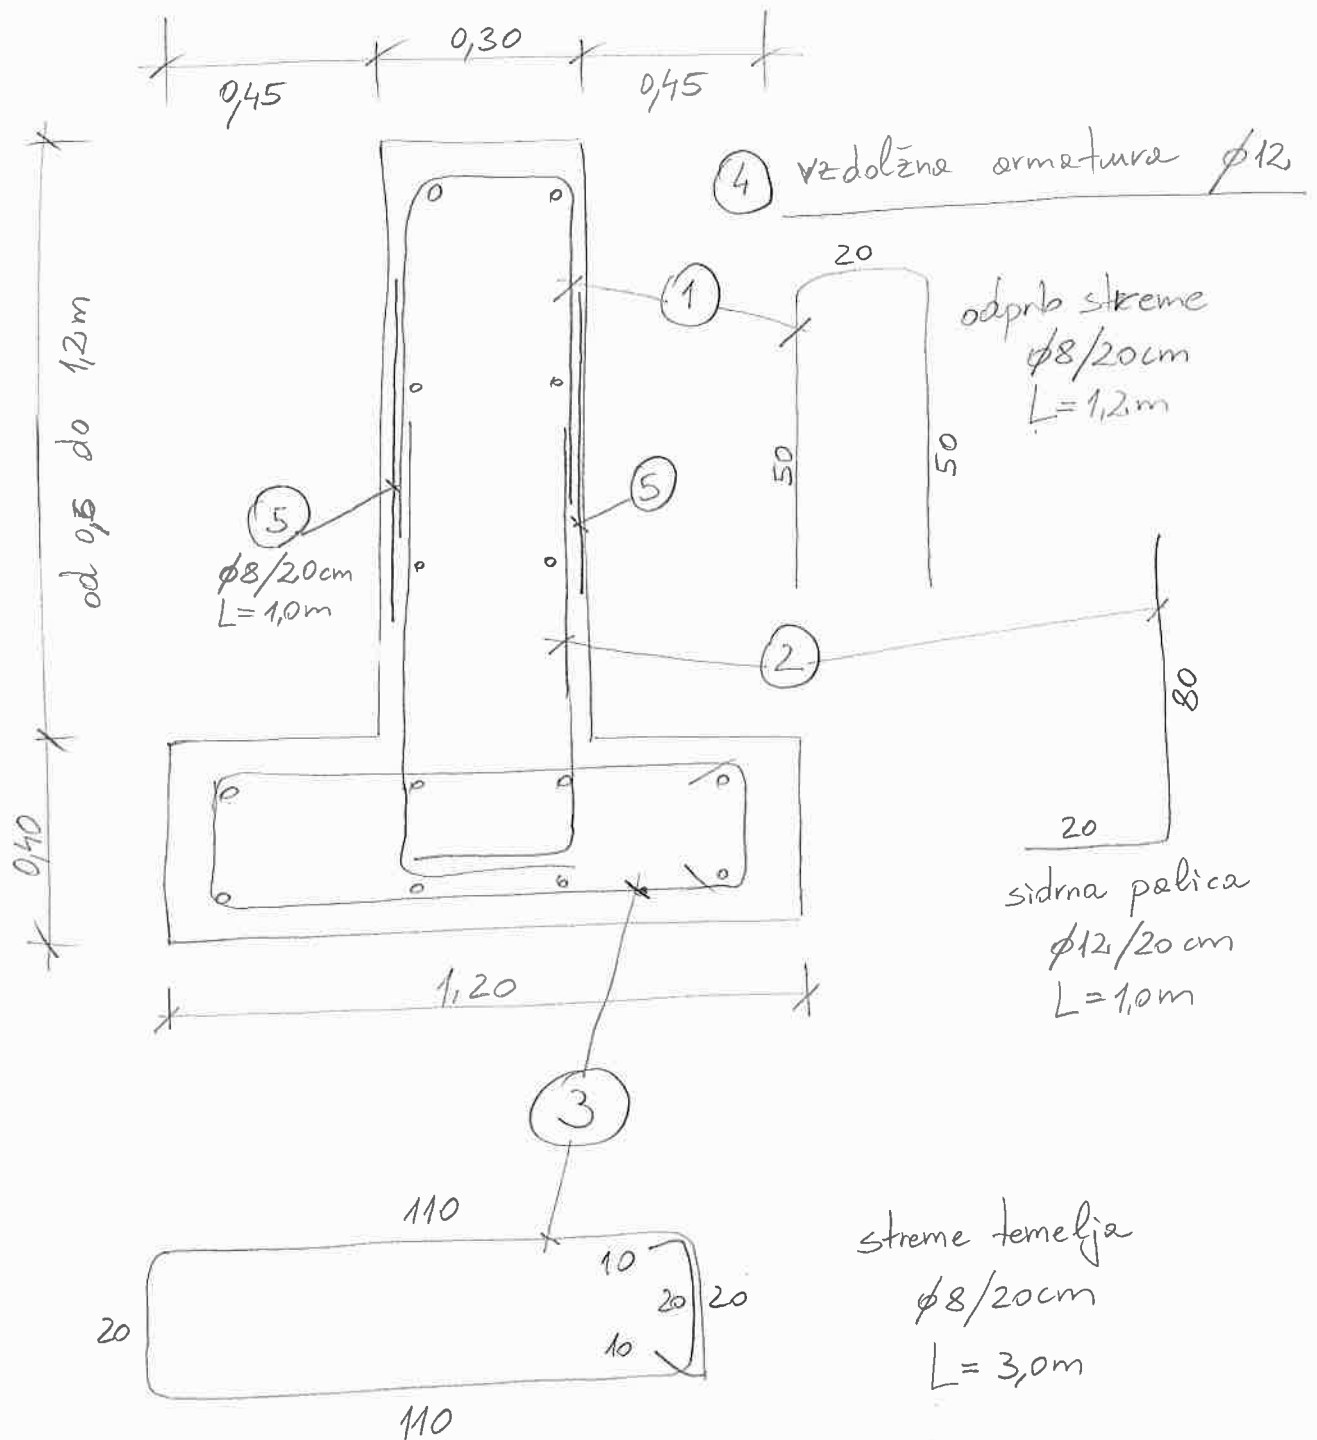 0,30
0,45
0,45
④ vzdolžna armatura ϕ12
20
① odprto streme
ϕ8/20cm
L=1,2m
50
50
od 0,5 do 1,2m
⑤
⑤
ϕ8/20cm
L=1,0m
②
80
20
sidrna palica
ϕ12/20cm
L=1,0m
0,40
1,20
③
110
10
20
20
20
10
110
streme temelja
ϕ8/20cm
L=3,0m